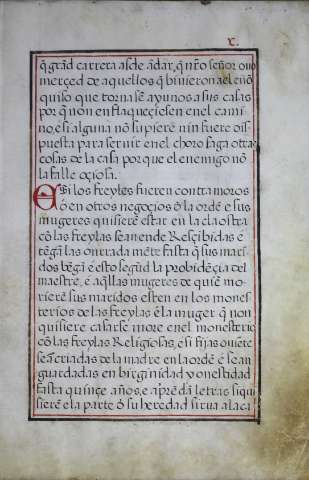 x.
q̃ grãd carrera as de ãdar, q̃ nr̃o señor ouo
merçed de aquellos q̃ binieron a el e nõ
quiso que tornasẽ ayunos a sus casas
por q̃ non enflaqueçiesen en el cami
no, e si alguna nõ supiere nin fuere dis
puesta para seruir en el choro faga otras
cosas de la casa por que el enemigo nõ
la falle oçiosa.
E Si los freyles fueren contra moros
o en otros negoçios õ la ordẽ e sus
mugeres quisierẽ estar en la claostra
cõ las freylas sean ende Resçibidas e
tẽgã las onrrada mẽte fasta q̃ sus mari
dos bẽgã e esto segũd la probidẽçia del
maestre, e aq̃llas mugeres de quiẽ mo
rierẽ sus maridos esten en los mones
terios de las freylas e la muger q̃ non
quisiere casarse more en el monesterio
cõ las freylas Religiosas, e si fijas ouierẽ
seã criadas de la madre en la ordẽ e sean
guardadas en birginidad y onestidad
fasta quinçe años, e aprẽdã letras si qui
sierẽ e la parte õ su heredad sirua a la ca